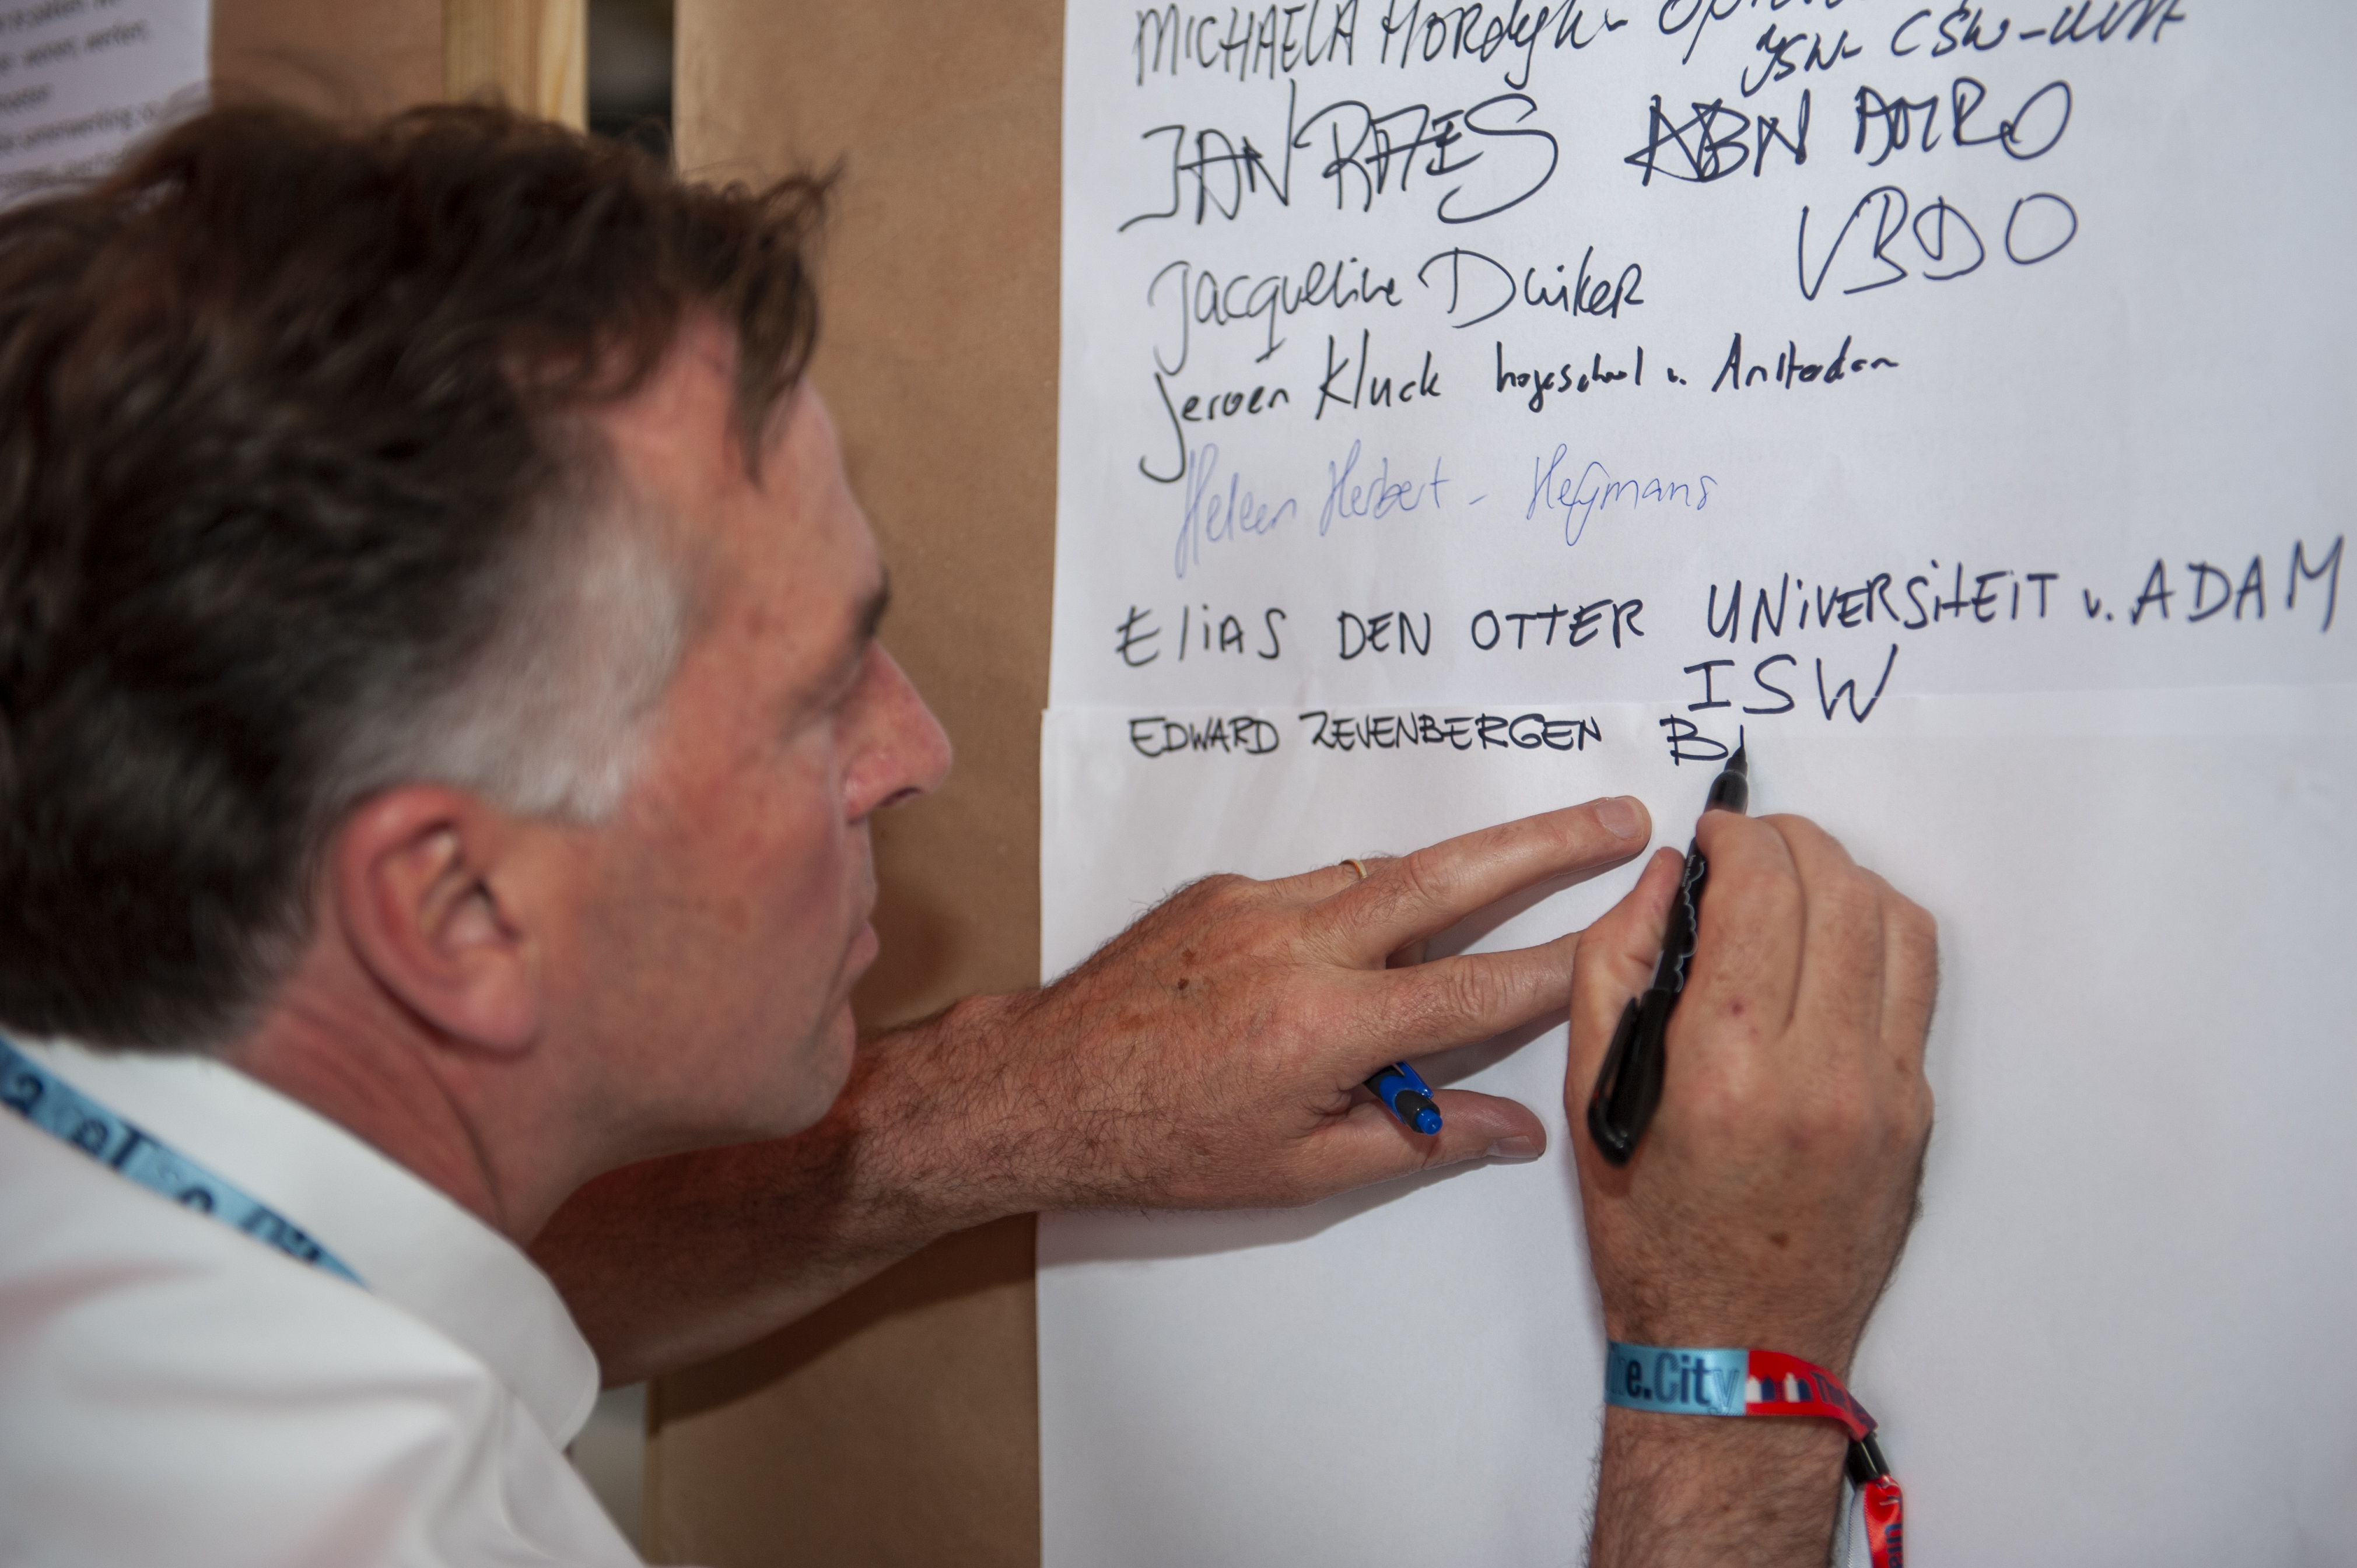 MICHAELA HORdyk -
JSW- CSW-UVA
JAN RAES ABN AMRO
Jacqueline Duiker VBDO
Jeroen Kluck hogeschool v. Amsterdam
Heleen Herbert - Heijmans
EliAS DEN OTTER UNiVERSiTEiT v. ADAM
ISW
EDWARD ZEVENBERGEN B
e.City